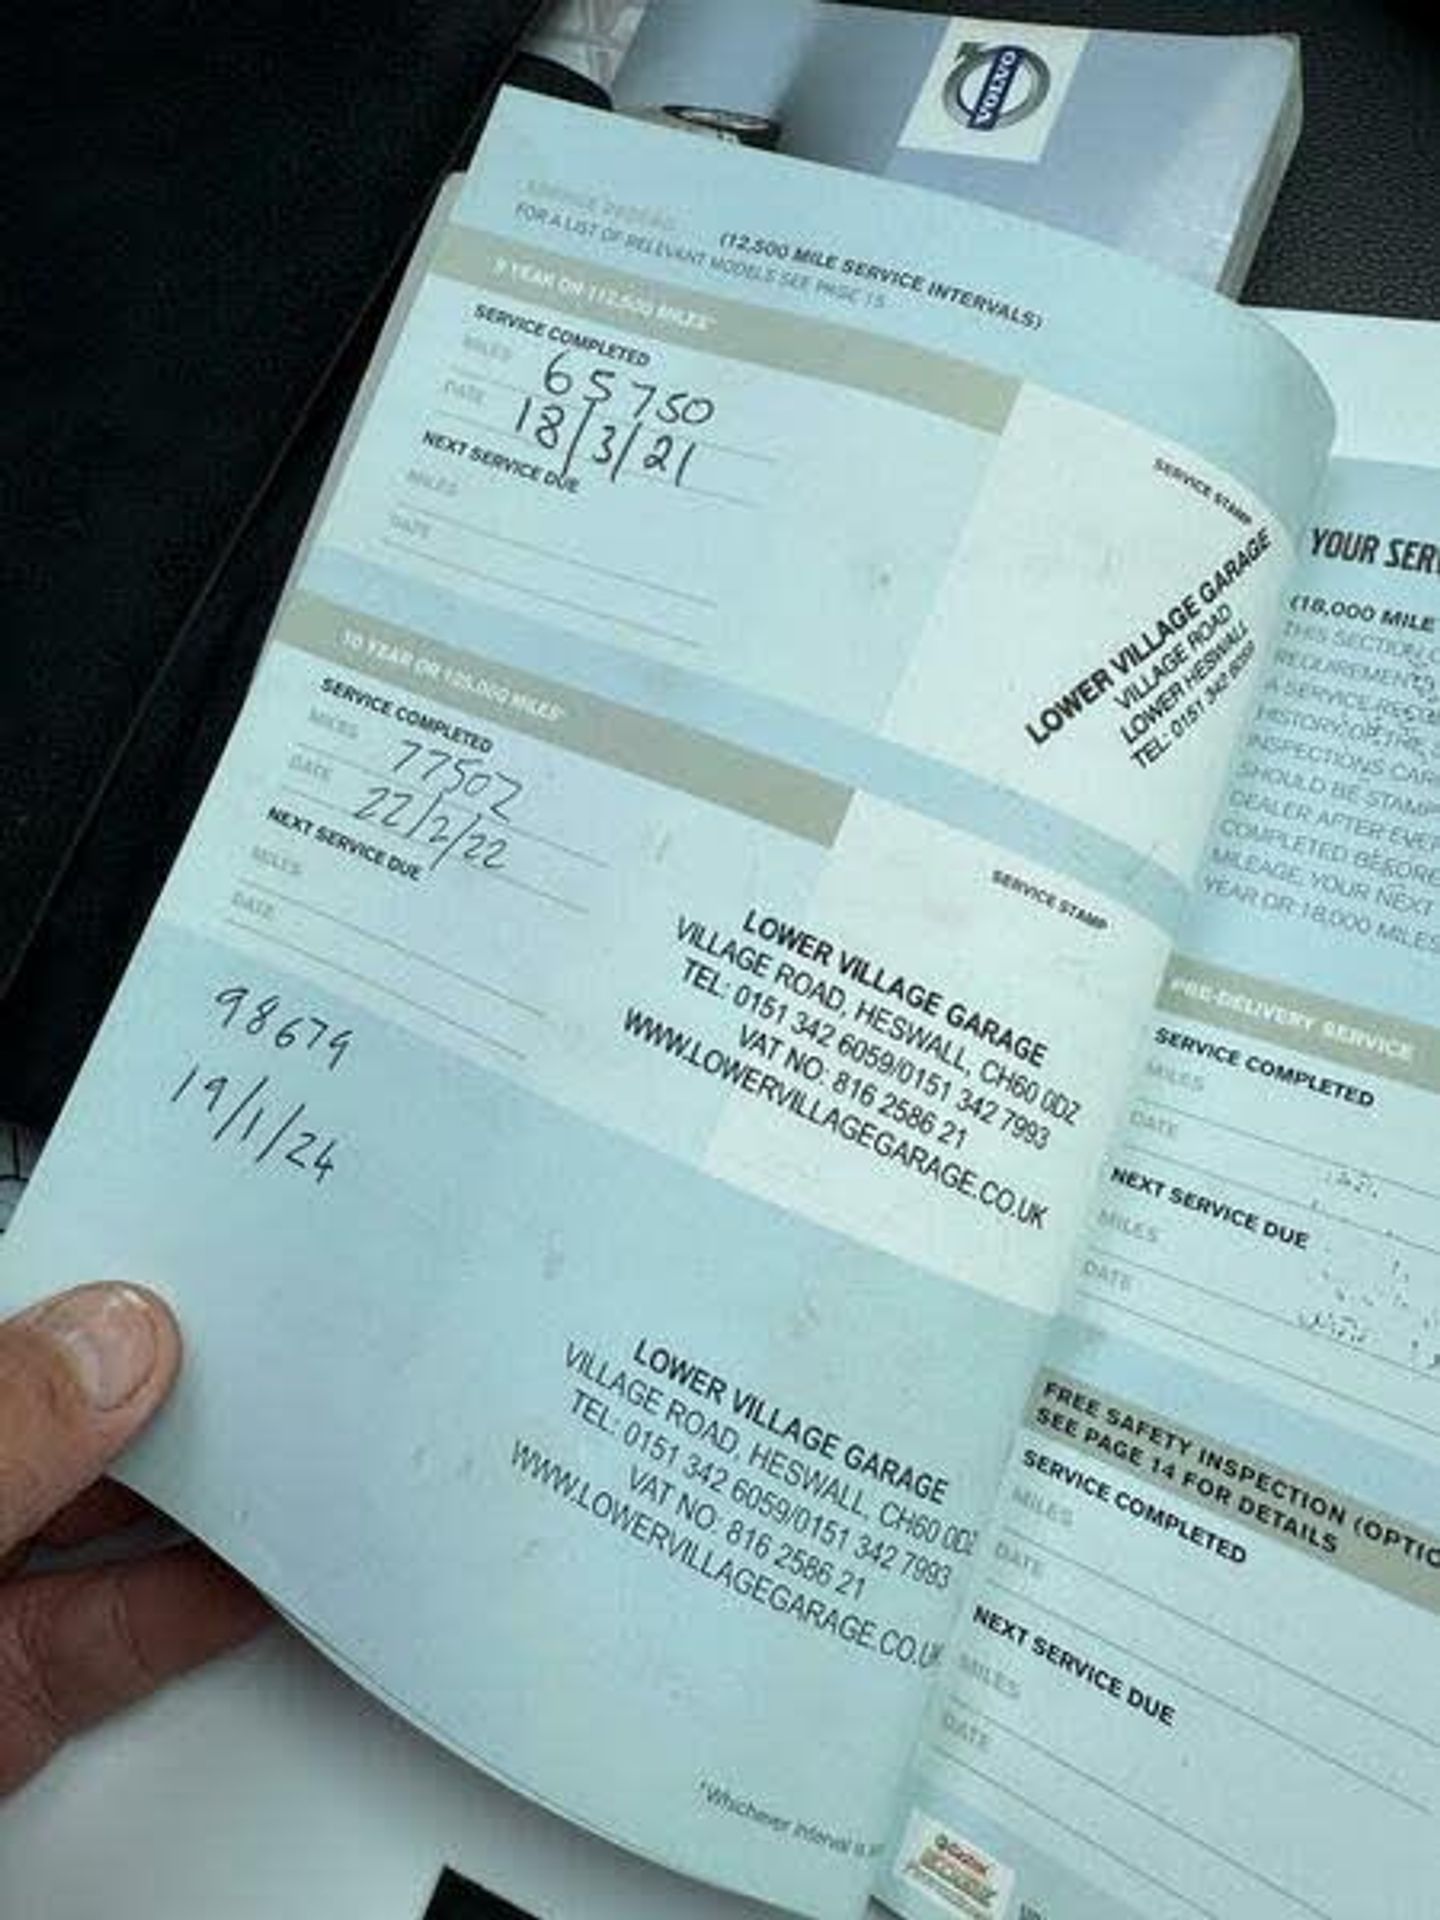 VOLVO
SERVICE RECORD (12,500 MILE SERVICE INTERVALS)
FOR A LIST OF RELEVANT MODELS SEE PAGE 15
9 YEAR OR 112,500 MILES*
SERVICE COMPLETED
MILES 65750
DATE 18/3/21
NEXT SERVICE DUE
MILES
DATE
SERVICE STAMP
LOWER VILLAGE GARAGE
VILLAGE ROAD
LOWER HESWALL
TEL: 0151 342 6059
10 YEAR OR 125,000 MILES*
SERVICE COMPLETED
MILES 77502
DATE 22/2/22
NEXT SERVICE DUE
MILES
DATE
SERVICE STAMP
LOWER VILLAGE GARAGE
VILLAGE ROAD, HESWALL, CH60 0DZ
TEL: 0151 342 6059/0151 342 7993
VAT NO: 816 2586 21
WWW.LOWERVILLAGEGARAGE.CO.UK
98679
19/1/24
LOWER VILLAGE GARAGE
VILLAGE ROAD, HESWALL, CH60 0DZ
TEL: 0151 342 6059/0151 342 7993
VAT NO: 816 2586 21
WWW.LOWERVILLAGEGARAGE.CO.UK
*Whichever interval is
YOUR SERV
(18,000 MILE
THIS SECTION
REQUIREMENTS
A SERVICE RECO
HISTORY OF THE
INSPECTIONS CAR
SHOULD BE STAMP
DEALER AFTER EVER
COMPLETED BEFORE
MILEAGE, YOUR NEXT
YEAR OR 18,000 MILES
PRE-DELIVERY SERVICE
SERVICE COMPLETED
MILES
DATE
NEXT SERVICE DUE
MILES
DATE
FREE SAFETY INSPECTION (OPTIO
SEE PAGE 14 FOR DETAILS
SERVICE COMPLETED
MILES
DATE
NEXT SERVICE DUE
MILES
DATE
Castrol